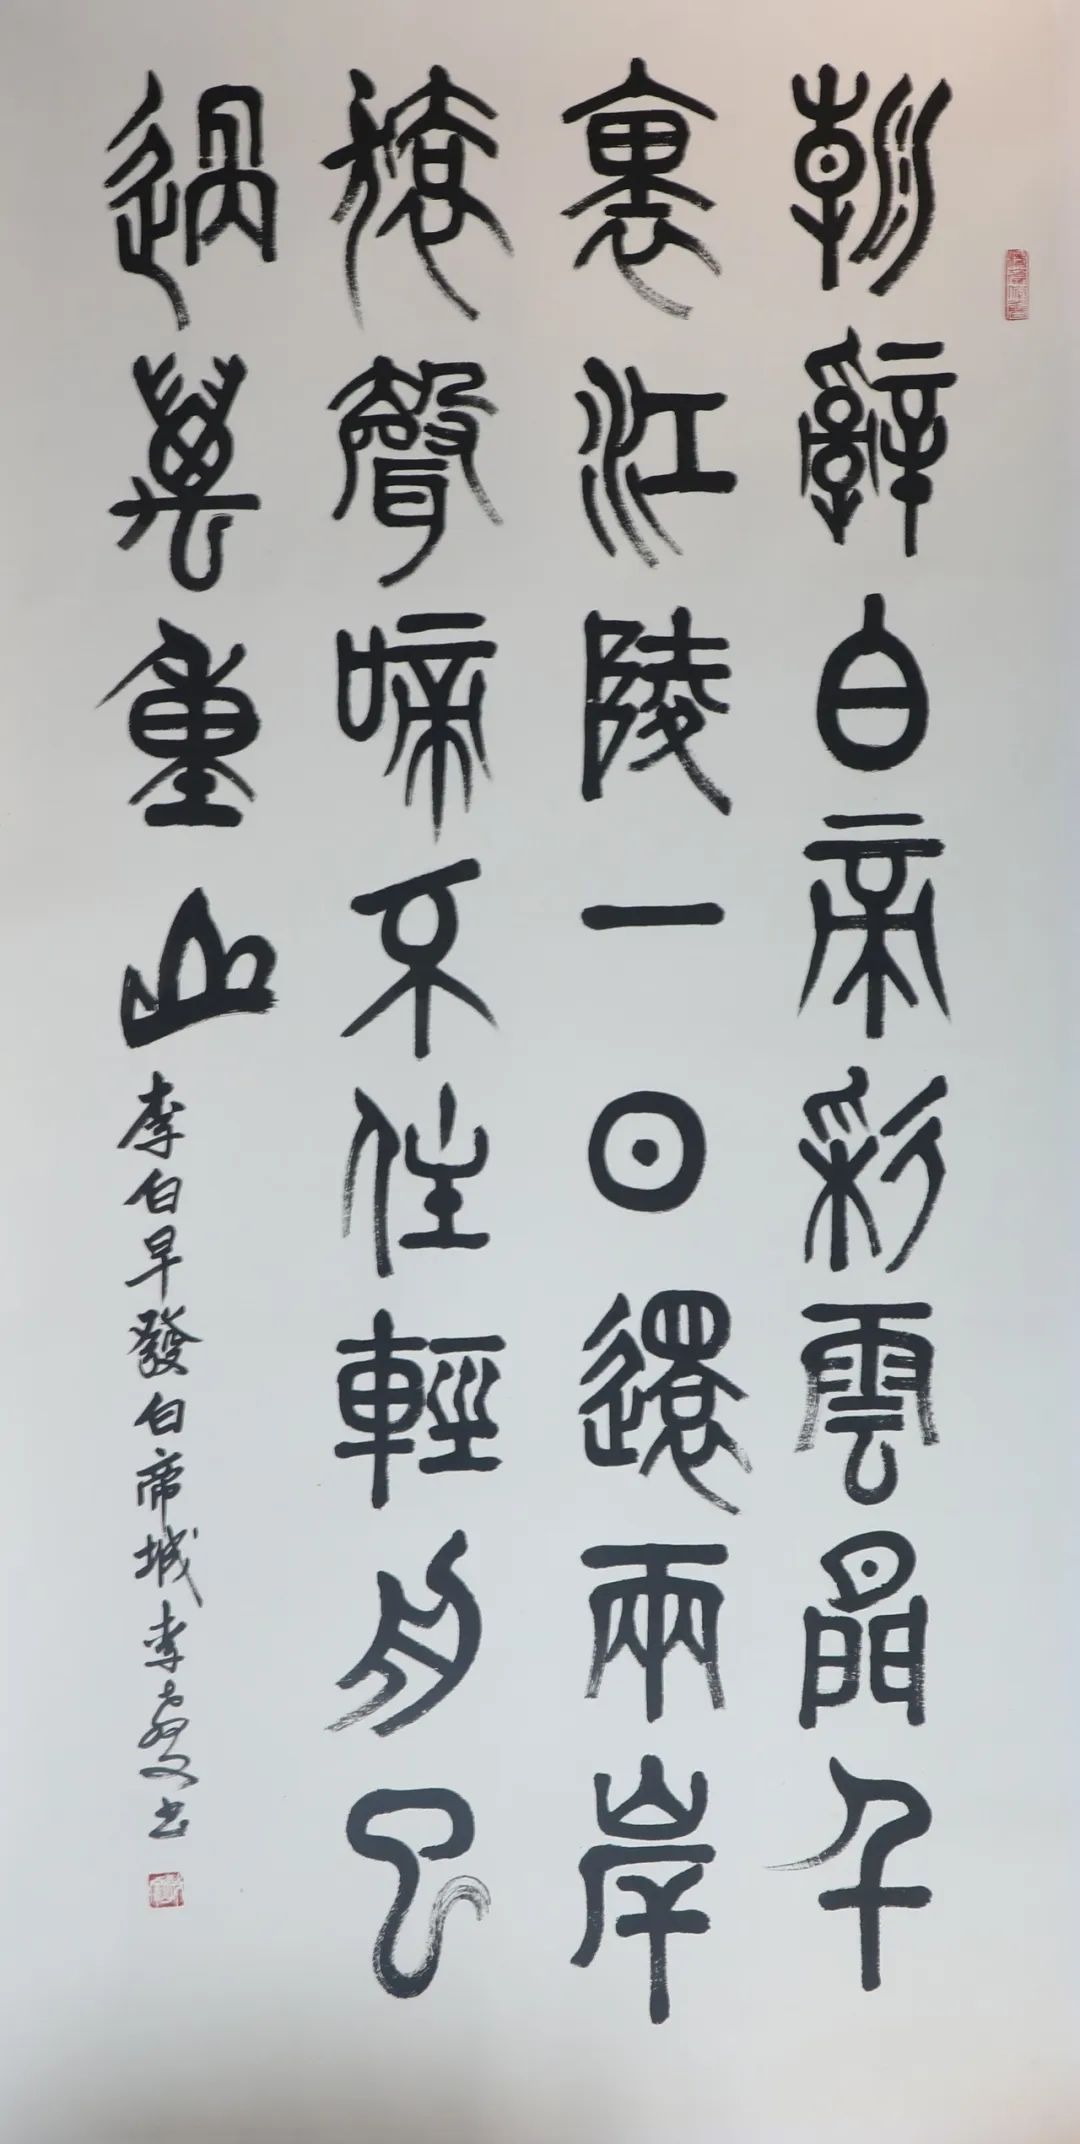 朝辭白帝彩雲間千
裏江陵一日還兩岸
猿聲啼不住輕舟已
過萬重山
李白早發白帝城李书